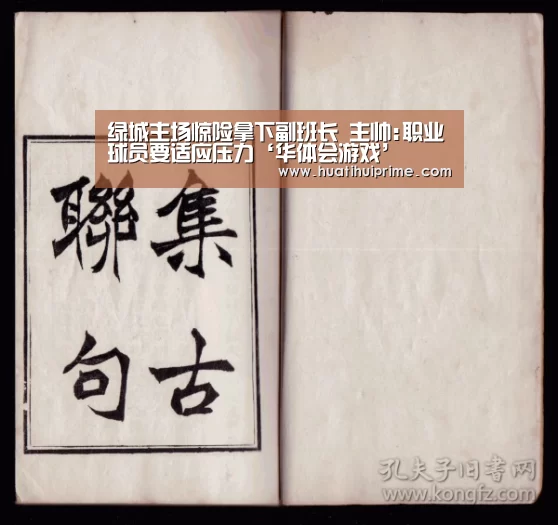 绿城主场惊险拿下副班长 主帅：职业
球员要适应压力‘华体会游戏’
www.huatihuiprime.com
集古
聯句
孔夫子旧书网
www.kongfz.com